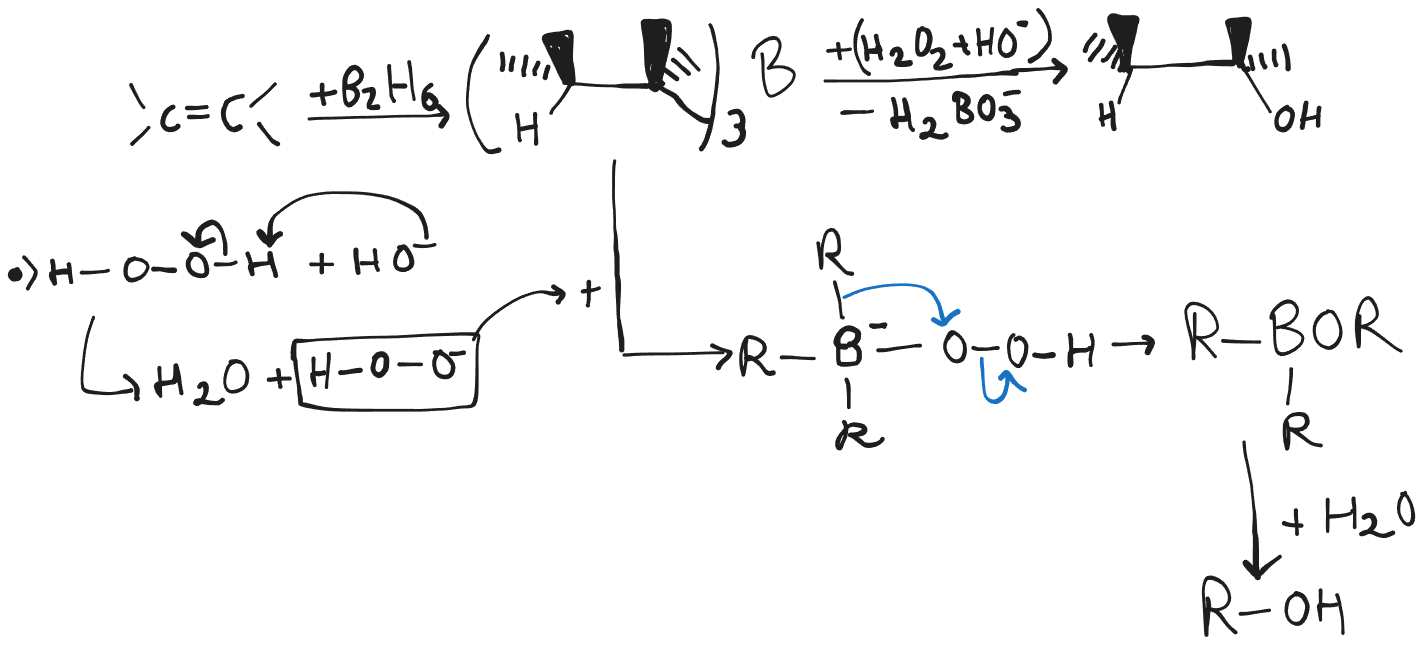 C=C +B₂H₆ ( H )₃ B +(H₂O₂+HO⁻) H OH
− H₂BO₃⁻
•) H−O−O−H + HO⁻
H₂O + H−O−O⁻ +
R
R−B⁻−O−O−H → R−BOR
R R
+ H₂O
R−OH